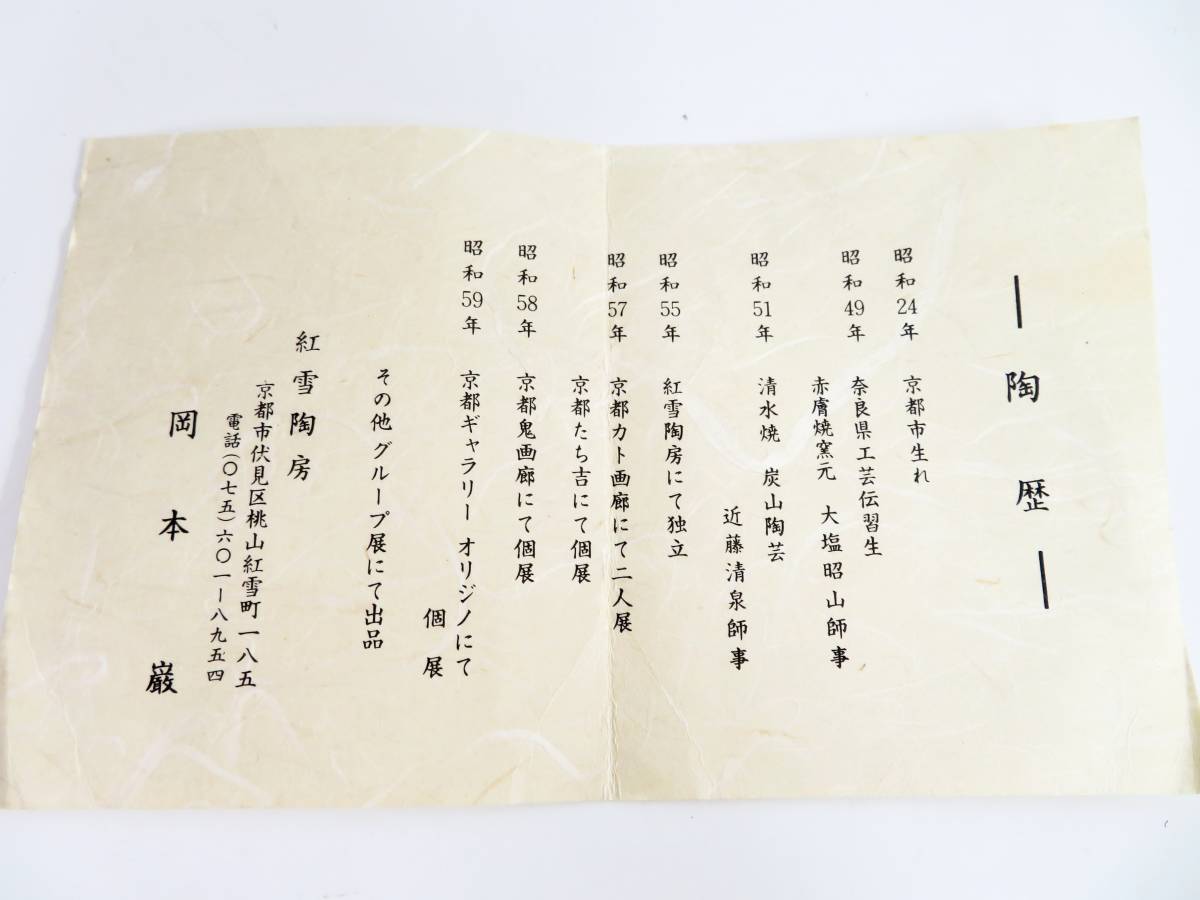 ―陶歴―
昭和24年 京都市生れ
昭和49年 奈良県工芸伝習生
赤膚焼窯元 大塩昭山師事
昭和51年 清水焼 炭山陶芸
近藤清泉師事
昭和55年 紅雪陶房にて独立
昭和57年 京都カト画廊にて二人展
京都たち吉にて個展
昭和58年 京都鬼画廊にて個展
昭和59年 京都ギャラリー オリジノにて
個展
その他グループ展にて出品
紅雪陶房
京都市伏見区桃山紅雪町一八五
電話(〇七五)六〇一ー八九五四
岡本巌